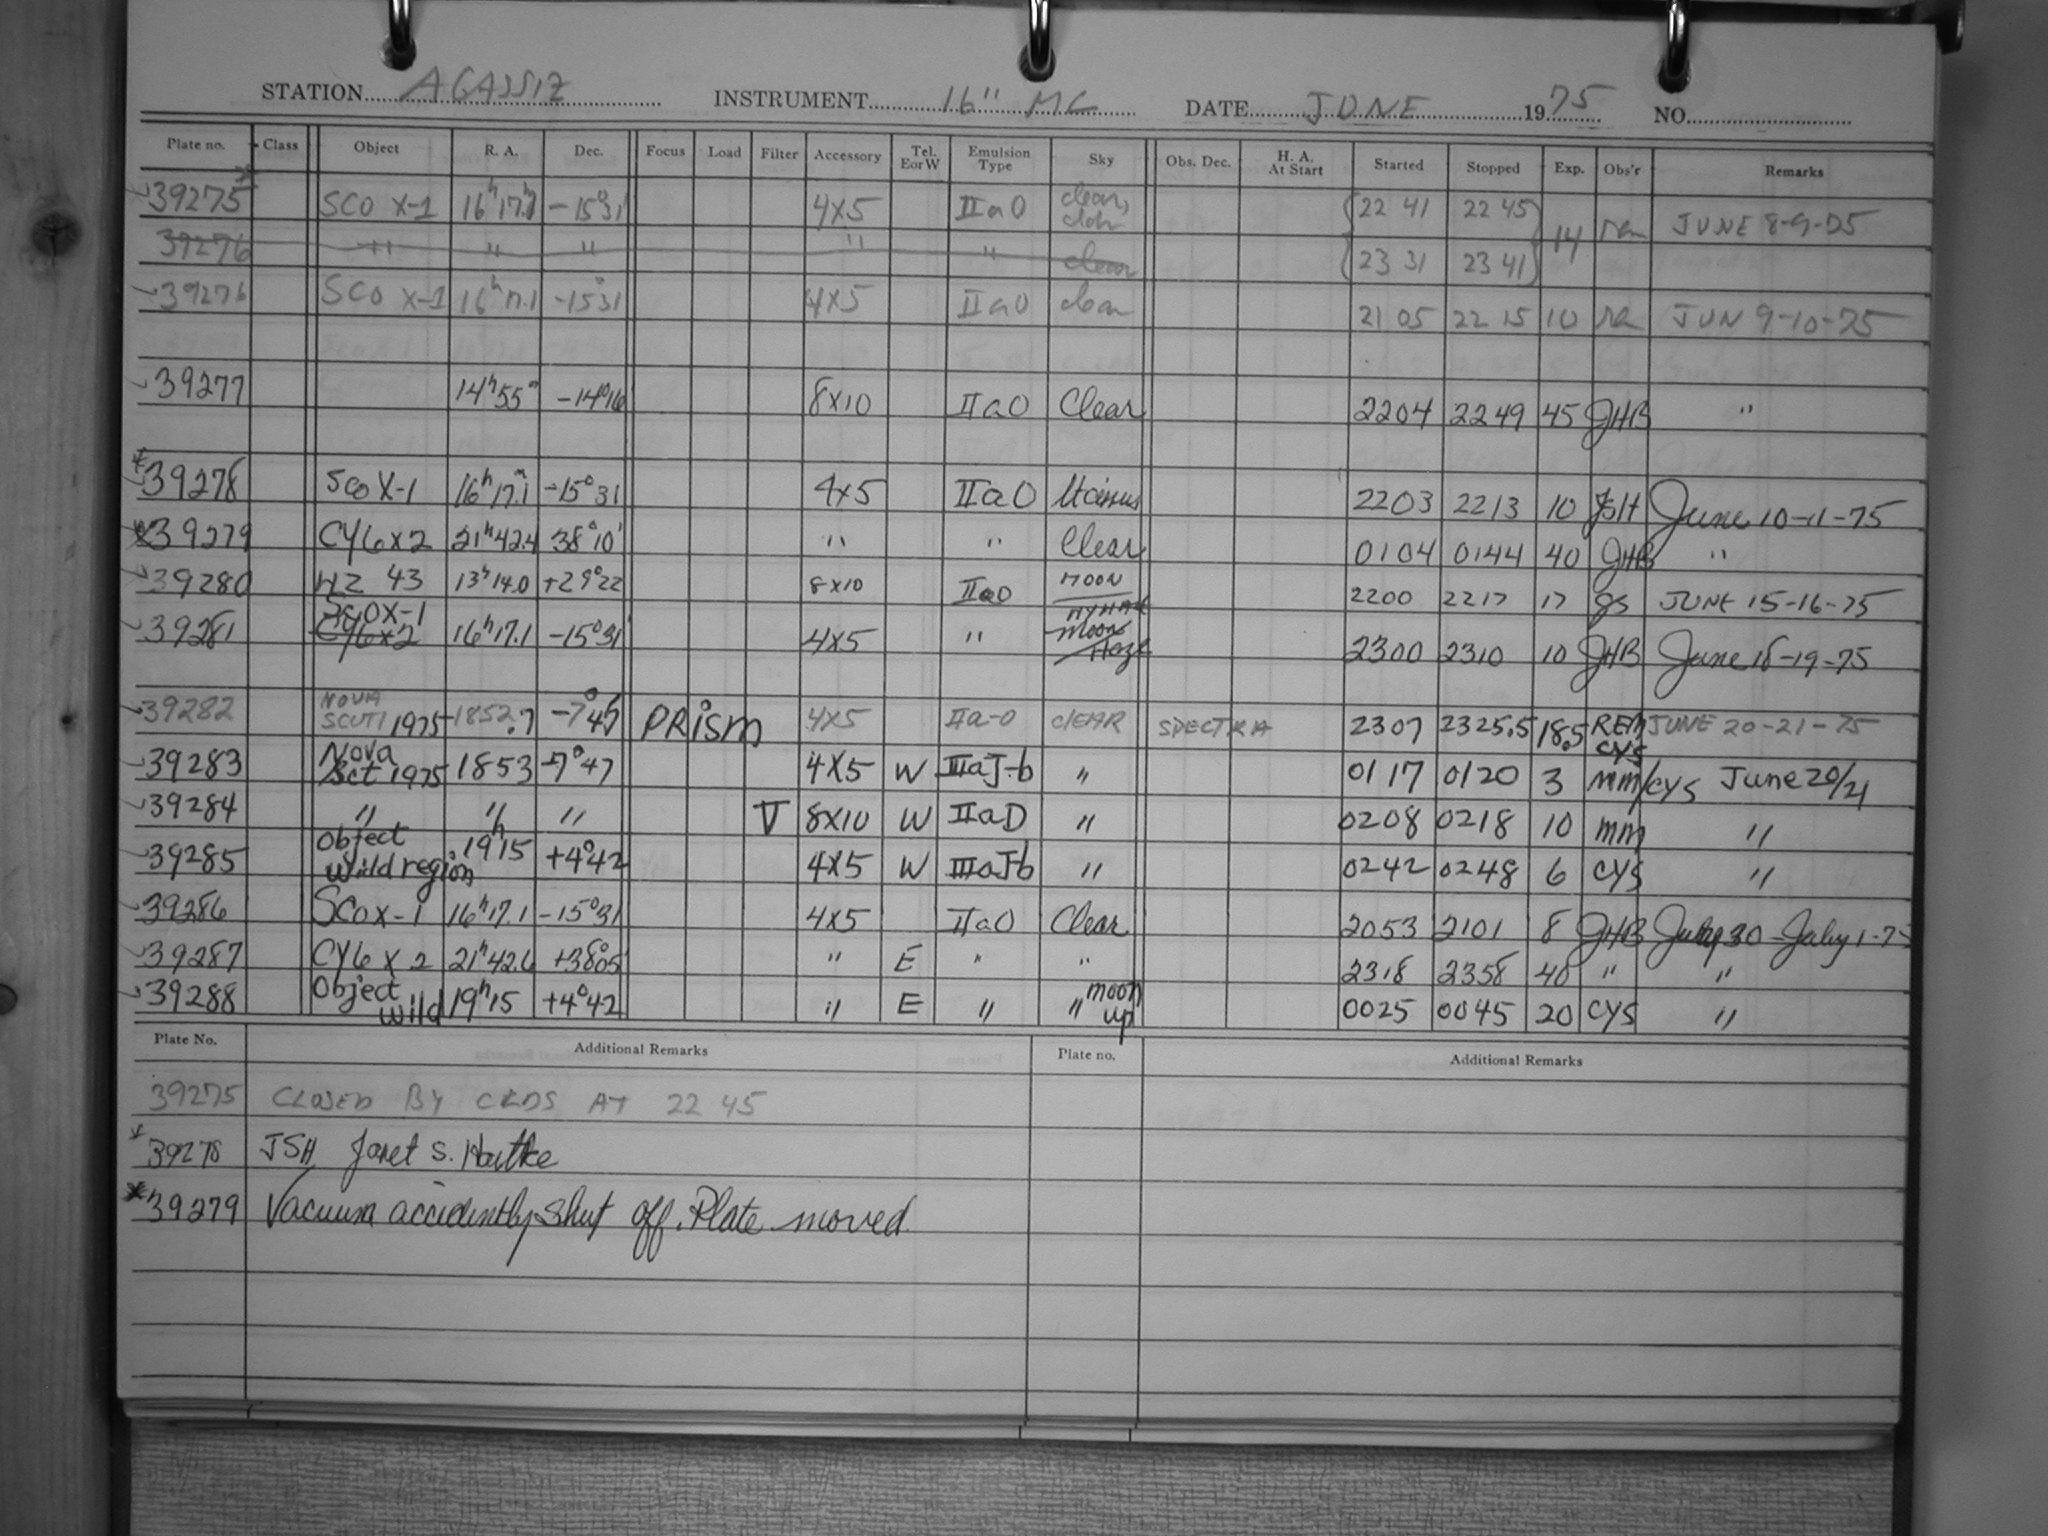 STATION AGASSIZ INSTRUMENT 16" MC DATE JUNE 1975 NO.
Plate no. Class Object R. A. Dec. Focus Load Filter Accessory Tel. E or W Emulsion Type Sky Obs. Dec. H. A. At Start Started Stopped Exp. Obs'r Remarks
39275* SCO X-1 16h17.1 -15°31' 4X5 IIaO clear, 22 41 22 45 14 JUNE 8-9-75
39276 " " " " " clear 23 31 23 41
39276 SCO X-1 16h17.1 -15°31 4X5 IIaO clear 21 05 22 15 10 JUN 9-10-75
39277 14h55m -14°16' 8X10 IIaO Clear 2204 2249 45 JHB "
*39278 Sco X-1 16h17.1m -15°31 4x5 IIaO lt cirrus 2203 2213 10 JSH June 10-11-75
*39279 CYG X2 21h42.4 38°10' " " Clear 0104 0144 40 JHB "
39280 HZ 43 13h14.0 +29°22 8X10 IIaO MOON 2200 2217 17 gs JUNE 15-16-75
39281 Sco X-1 CYG X2 16h17.1 -15°31' 4X5 " Moon Haze 2300 2310 10 JHB June 18-19-75
39282 NOVA SCUTI 1975 1852.7 -7°47 PRISM 4X5 IIa-O CLEAR SPECTRA 2307 2325.5 18.5 REM CYS JUNE 20-21-75
39283 Nova Sct 1975 1853 -7°47 4X5 W IIIaJ-b " 0117 0120 3 mm/CYS June 20/21
39284 " " " V 8X10 W IIaD " 0208 0218 10 mm "
39285 Object Wild region 19h15 +4°42 4X5 W IIIaJb " 0242 0248 6 CYS "
39286 SCO X-1 16h17.1 -15°31' 4X5 IIaO Clear 2053 2101 8 JHB 30 - July 1-75
39287 CYG X 2 21h42.6 +38°05' " E " " 2318 2358 40 " "
39288 Object Wild 19h15 +4°42 " E " " moon up 0025 0045 20 CYS "
Plate No. Additional Remarks Plate no. Additional Remarks
39275 CLOSED BY CLDS AT 22 45
*39278 JSH Janet S.
*39279 Vacuum accidently shut off. Plate moved.